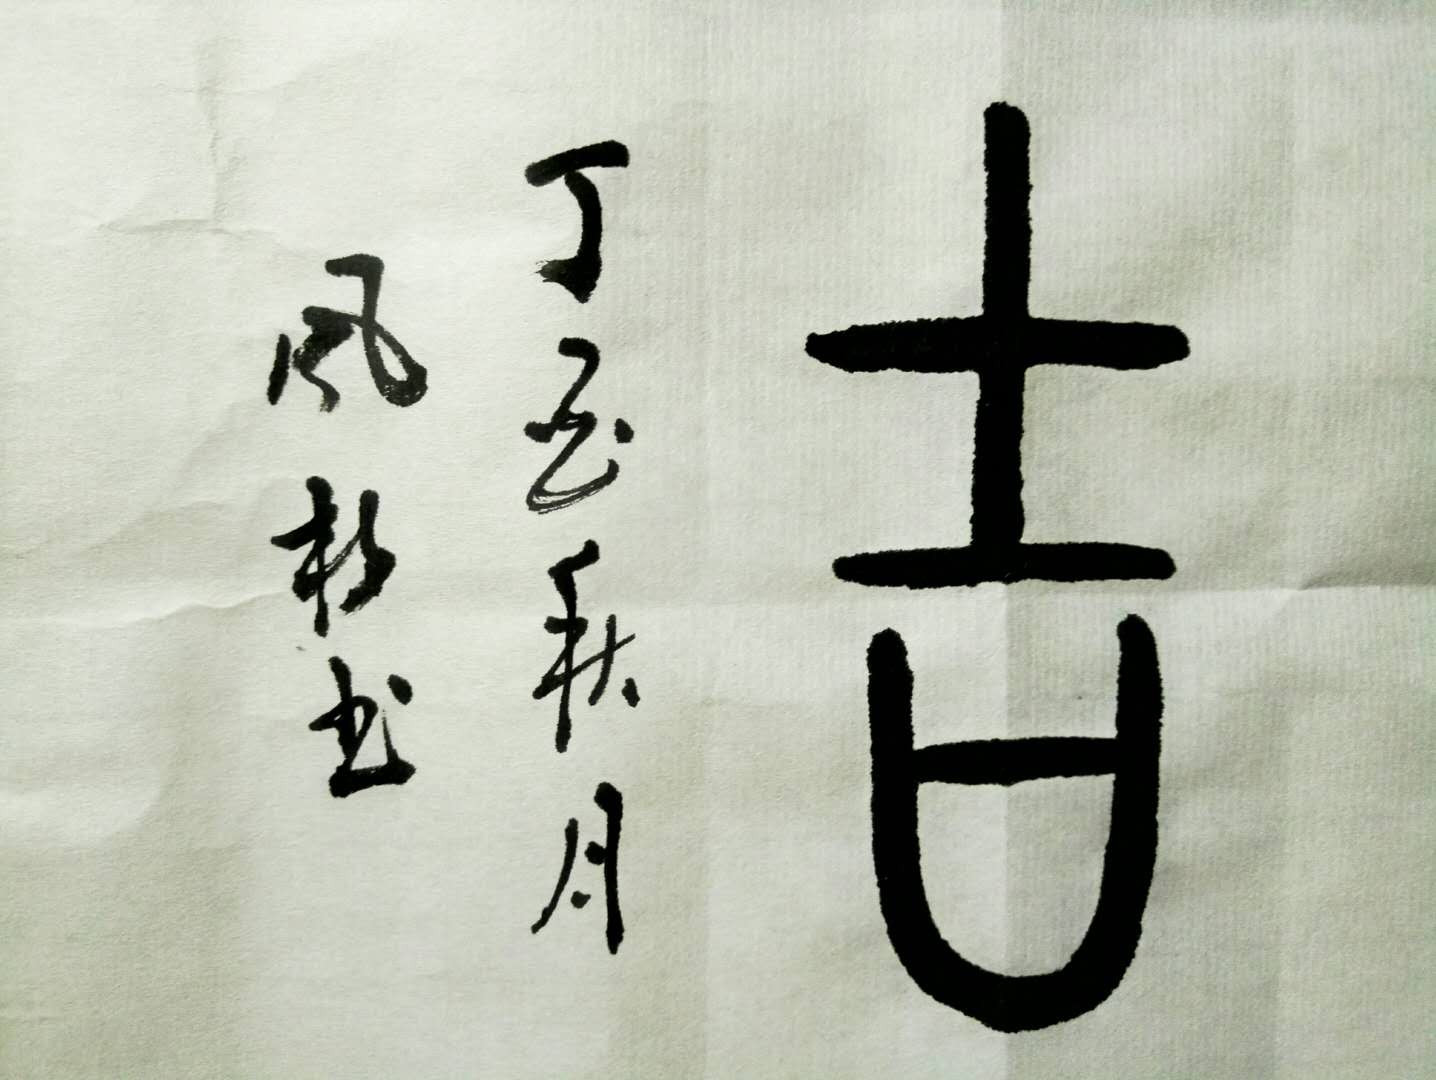 吉
丁酉秋月
风杉书